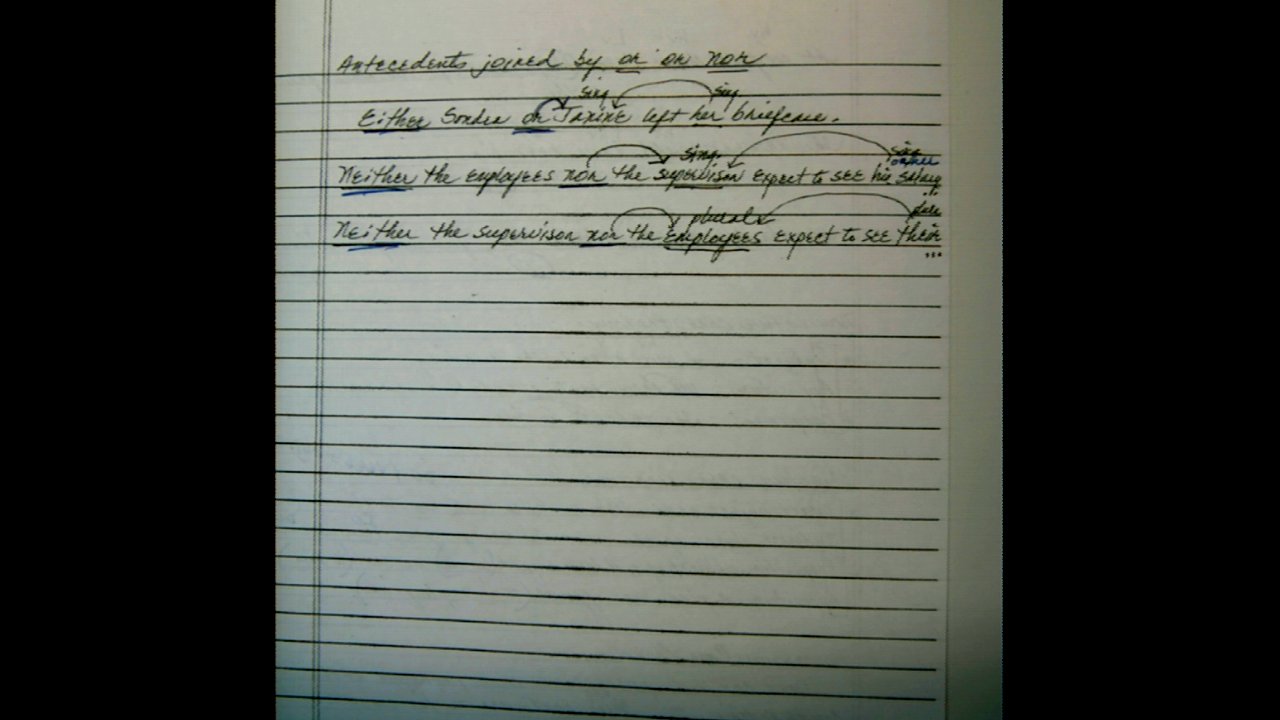 Antecedents joined by or or nor
sing. sing.
Either Sondra or Janine left her briefcase.
sing. sing.
or her
Neither the employees nor the supervisor expect to see his salary
plural plur.
Neither the supervisor nor the employees expect to see their
...